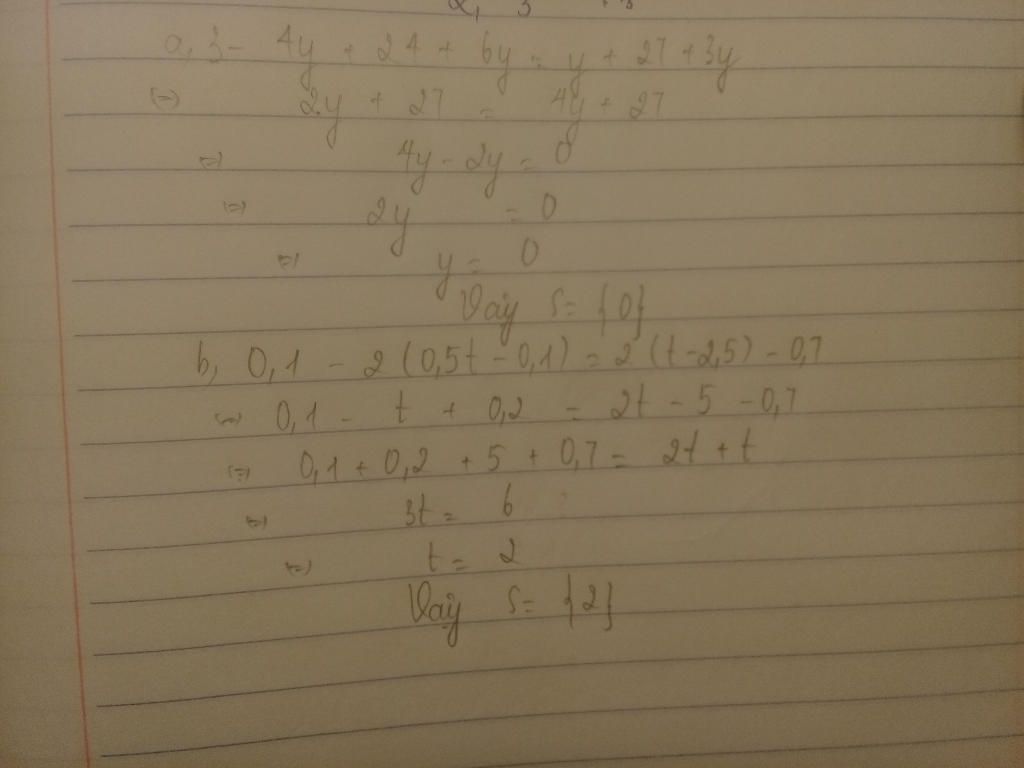 a, 3 - 4y + 24 + 6y = y + 27 + 3y
(=) 2y + 27 = 4y + 27
(=) 4y - 2y = 0
(=) 2y = 0
(=) y = 0
Vậy S = {0}
b, 0,1 - 2(0,5t - 0,1) = 2(t - 2,5) - 0,7
(=) 0,1 - t + 0,2 = 2t - 5 - 0,7
(=) 0,1 + 0,2 + 5 + 0,7 = 2t + t
(=) 3t = 6
(=) t = 2
Vậy S = {2}